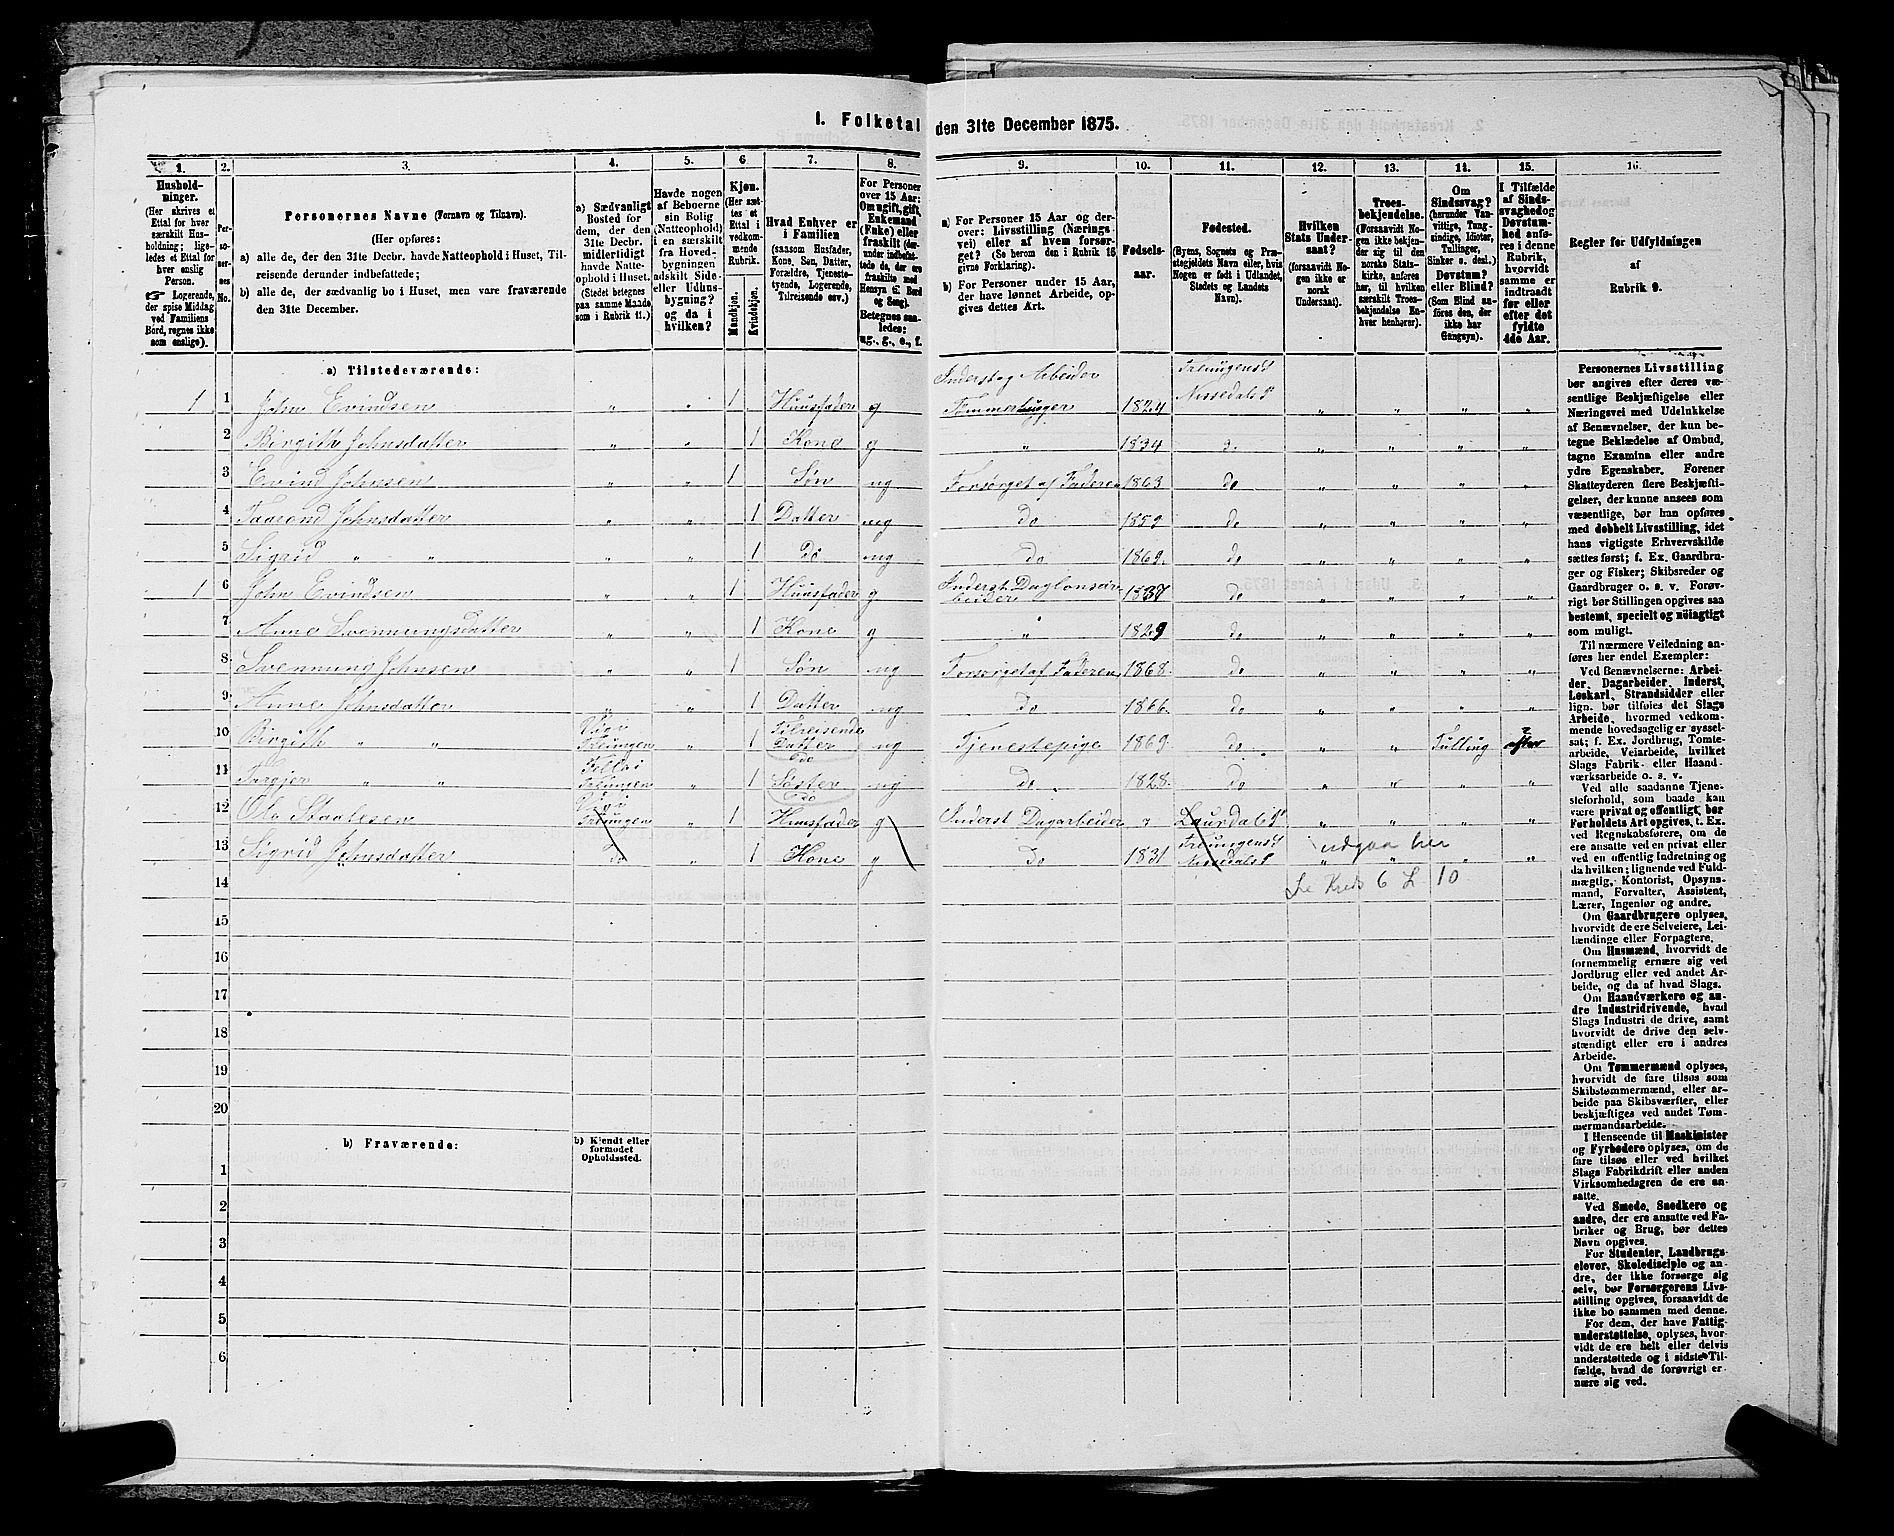 1. Folketal den 31te December 1875.
1. 2. 3. 4. 5. 6 7. 8. 9. 10. 11. 12. 13. 14. 15. 16.
Husholdninger.
(Her skrives et Ettal for hver særskilt Husholdning; ligeledes et Ettal for hver enslig Person.
☞ Logerende, der spise Middag ved Familiens Bord, regnes ikke som enslige).
Personernes No.
Personernes Navne (Fornavn og Tilnavn).
(Her opføres:
a) alle de, der den 31te Decbr. havde Natteophold i Huset, Tilreisende derunder indbefattede;
b) alle de, der sædvanlig bo i Huset, men vare fraværende den 31te December.
a) Sædvanligt Bosted for dem, der den 31te Decbr. midlertidigt havde Natteophold i Huset.
(Stedet betegnes paa samme Maade, som i Rubrik 11.)
Havde nogen af Beboerne sin Bolig (Natteophold) i en særskilt fra Hovedbygningen adskilt Side- eller Udhusbygning? og da i hvilken?
Kjøn.
(Her sættes et Ettal i vedkommende Rubrik.
Mandkjøn. Kvindekjøn.
Hvad Enhver er i Familien
(saasom Husfader, Kone, Søn, Datter, Forældre, Tjenestetyende, Logerende, Tilreisende osv.)
For Personer over 15 Aar: Om ugift, gift, Enkemand (Enke) eller fraskilt (derunder indbefattede de, der ere fraskilte med Hensyn til Bord og Seng). Betegnes saaledes: ug., g., e., f.
a) For Personer 15 Aar og derover: Livsstilling (Næringsvei) eller af hvem forsørget? (Se herom den i Rubrik 16 givne Forklaring).
b) For Personer under 15 Aar, der have lønnet Arbeide, opgives dettes Art.
Fødselsaar.
Fødested.
(Byens, Sognets og Præstegjeldets Navn eller, hvis Nogen er født i Udlandet, Stedets og Landets Navn).
Hvilken Stats Undersaat?
(forsaavidt Nogen ikke er norsk Undersaat).
Troesbekjendelse.
(Forsaavidt Nogen ikke bekjender sig til den norske Statskirke, anføres her, til hvilken særskilt Troesbekjendelse Enhver henhører).
Om Sindssvag?
(herunder Vanvittige, Tungsindige, Idioter, Tullinger, Sinker o. desl.)
Døvstum? eller Blind?
(Som Blind anføres den, der ikke har Gangsyn).
I Tilfælde af Sindssvaghed og Døvstumhed anføres i denne Rubrik, hvorvidt samme er indtraadt før eller efter det fyldte 4de Aar.
Regler for Udfyldningen af Rubrik 9.
a) Tilstedeværende:
1 1 John Evindsen „ „ 1 Huusfader g Inderst og Arbeider Tømmerhugger 1824 Treungens S Nissedals P „ „ „ „
2 Birgith Johnsdatter „ „ 1 Kone g „ 1834 d. „ „ „ „
3 Evind Johnsen „ „ 1 Søn ug Forsørget af Faderen 1863 do „ „ „ „
4 Taarond Johnsdatter „ „ 1 Datter ug Do 1859 do „ „ „ „
5 Sigrid „ „ „ „ 1 Do ug do 1869. do „ „ „ „
1 6 John Evindsen „ „ 1 Huusfader g Inderst Daglønsarbeider 1837 do „ „ „ „
7 Anne Svennungsdatter „ „ 1 Kone g „ 1829 do „ „ „ „
8. Svennung Johnsen „ „ 1 Søn ug Forsørget af Faderen 1868. do „ „ „ „
9. Anne Johnsdatter „ „ 1 Datter ug do 1866. do „ „ „ „
10 Birgith „ „ Vigi Treungen „ 1 Tilreisende Datter ug Tjenestepige 1869. do „ „ Tulling efter
11 Targjer „ „ Treungen „ 1 do Søster ug Do 1828. Do „ „ „ „
12 Ole Staalesen Vigi Treungen „ 1 do Huusfader g Inderst Dagarbeider „ Laurdals P „ „ „ „
13 Sigrid Johnsdatter do „ 1 Kone g Do 1831 Treungens S Nissedals P „ „ „ „
udgaa her
Se Kreds 6 L 10
14
15
16
17
18
19
20
b) Fraværende:
b) Kjendt eller formodet Opholdssted.
1
2
3
4
5
6
Personernes Livsstilling
bør angives efter deres væ-
sentlige Beskjæftigelse eller
Næringsvei med Udelukkelse
af Benævnelser, der kun be-
tegne Beklædelse af Ombud,
tagne Examina eller andre
ydre Egenskaber. Forener
Skatteyderen flere Beskjæfti-
gelser, der kunne ansees som
væsentlige, bør han opføres
med dobbelt Livsstilling, idet
hans vigtigste Erhvervskilde
sættes først; f. Ex. Gaardbru-
ger og Fisker; Skibsreder og
Gaardbruger o. s. v. Forøv-
rigt bør Stillingen opgives saa
bestemt, specielt og nøiagtigt
som muligt.
Til nærmere Veiledning an-
føres her endel Exempler:
Ved Benævnelserne: Arbei-
der, Dagarbeider, Inderst,
Løskarl, Strandsidder eller
lign. bør tilføies det Slags
Arbeide, hvormed vedkom-
mende hovedsagelig er syssel-
sat; f. Ex. Jordbrug, Tomte-
arbeide, Veiarbeide, hvilket
Slags Fabrik- eller Haand-
værksarbeide o. s. v.
Ved alle saadanne Tjene-
steforhold, som baade kan
være privat og offentligt, bør
Forholdets Art opgives, t. Ex.
ved Regnskabsførere, om de
ere ansatte ved en privat eller
ved en offentlig Indretning og
da hvilken; lignende ved Fuld-
mægtig, Kontorist, Opsyns-
mand, Forvalter, Assistent,
Lærer, Ingeniør og andre.
Om Gaardbrugere oplyses,
hvorvidt de ere Selveiere, Lei-
lændinge eller Forpagtere.
Om Husmænd, hvorvidt de
fornemmelig ernære sig ved
Jordbrug eller ved andet Ar-
beide, og da af hvad Slags.
Om Haandværkere og an-
dre Industridrivende, hvad
Slags Industri de drive, samt
hvorvidt de drive den selv-
stændigt eller ere i andres
Arbeide.
Om Tømmermænd oplyses,
hvorvidt de fare tilsøs som
Skibstømmermænd, eller ar-
beide paa Skibsværfter, eller
beskjæftiges ved andet Tøm-
mermandsarbeide.
I Henseende til Maskinister
og Fyrbødere oplyses, om de
fare tilsøs eller ved hvilket
Slags Fabrikdrift eller anden
Virksomhedsgren de ere an-
satte.
Ved Smede, Snedkere og
andre, der ere ansatte ved Fa-
briker og Brug, bør dettes
Navn opgives.
For Studenter, Landbrugs-
elever, Skoledisciple og an-
dre, der ikke forsørge sig
selv, bør Forsørgerens Livs-
stilling opgives, forsaavidt de
ikke bo sammen med denne.
For dem, der have Fattig-
understøttelse, oplyses, hvor-
vidt de ere helt eller delvis
understøttede og i sidste Til-
fælde, hvad de forøvrigt er-
nære sig ved.